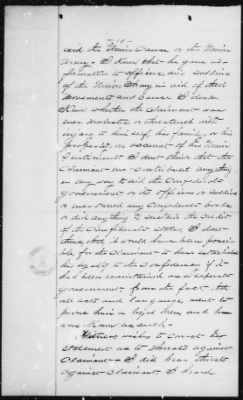 said the Union Cause or the Union
Army - I know that he gave in-
formation to officers and soldiers
of the Union Army in aid of their
Movements and Cause I don't
Know whether the Claimant was
ever molested or threatened with
injury to himself, his family, or his
property on account of his Union
Sentiments I don't think that the
Claimant ever contributed anything
in any way to aid the Confederate
government or its officers or soldiers
or ever owned any Confederate bonds
or did anything to sustain the credit
of the Confederate states, I don't
think that it would have been possi-
ble for the Claimant to have established
his loyalty to the Confederacy if it
had been maintained as a separate
government, from the fact that
all acts and language went to
prove him a loyal man and he
was Known as such.
Witness wishes to correct his
statement as to threats against
Claimant - I did hear threats
against Claimant I heard